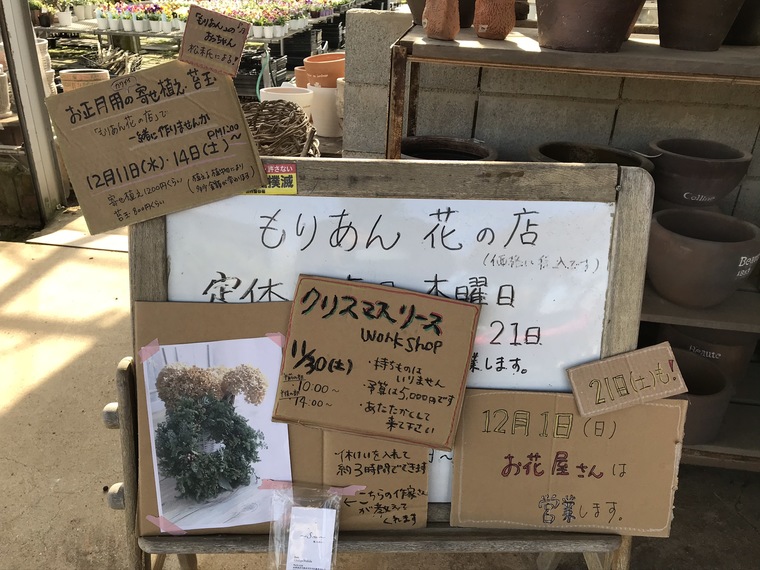 「もりあん」の
あっちゃん
松本化にまる!
お正月用の寄せ植え・苔玉
「もりあん花の店」で
一緒に作りませんか
PM1:00～
12月11日(水)・14日(土)
寄せ植え1200円くらい
苔玉・800円くらい
(植える植物により
多少金額が変わります)
許さない
撲滅
もりあん 花の店
(価格は税込です)
定休 毎月 木曜日
21日
業します。
クリスマスリース
workshop
11/30(土)
10:00～
14:00～
・持ちものは
いりません
・予算は5,000円です
・あたたかくして
来て下さい
休けいを入れて
約3時間でできます
←こちらの作家さん
が教えて
くれます
21日(土)も!
12月1日(日)
お花屋さんは
営業します。